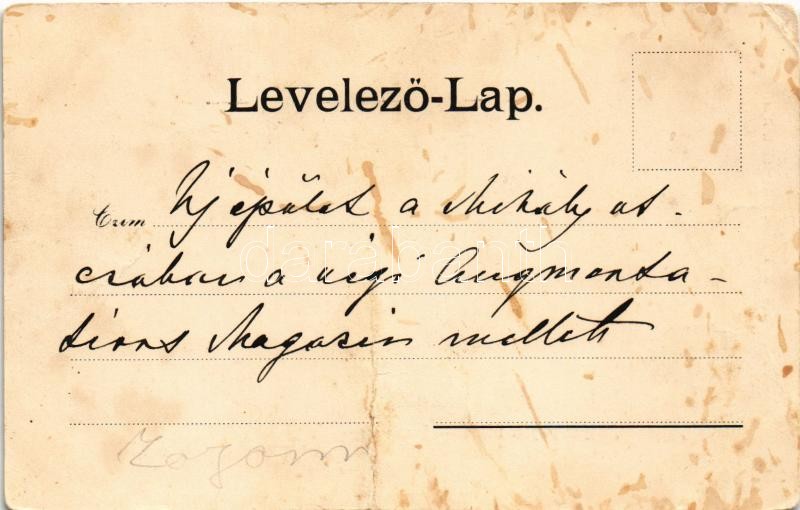 Levelező-Lap.
Czim Uj épület a Mihály ut-
czában a régi Augmonta-
tions Magazin mellett
darabanth